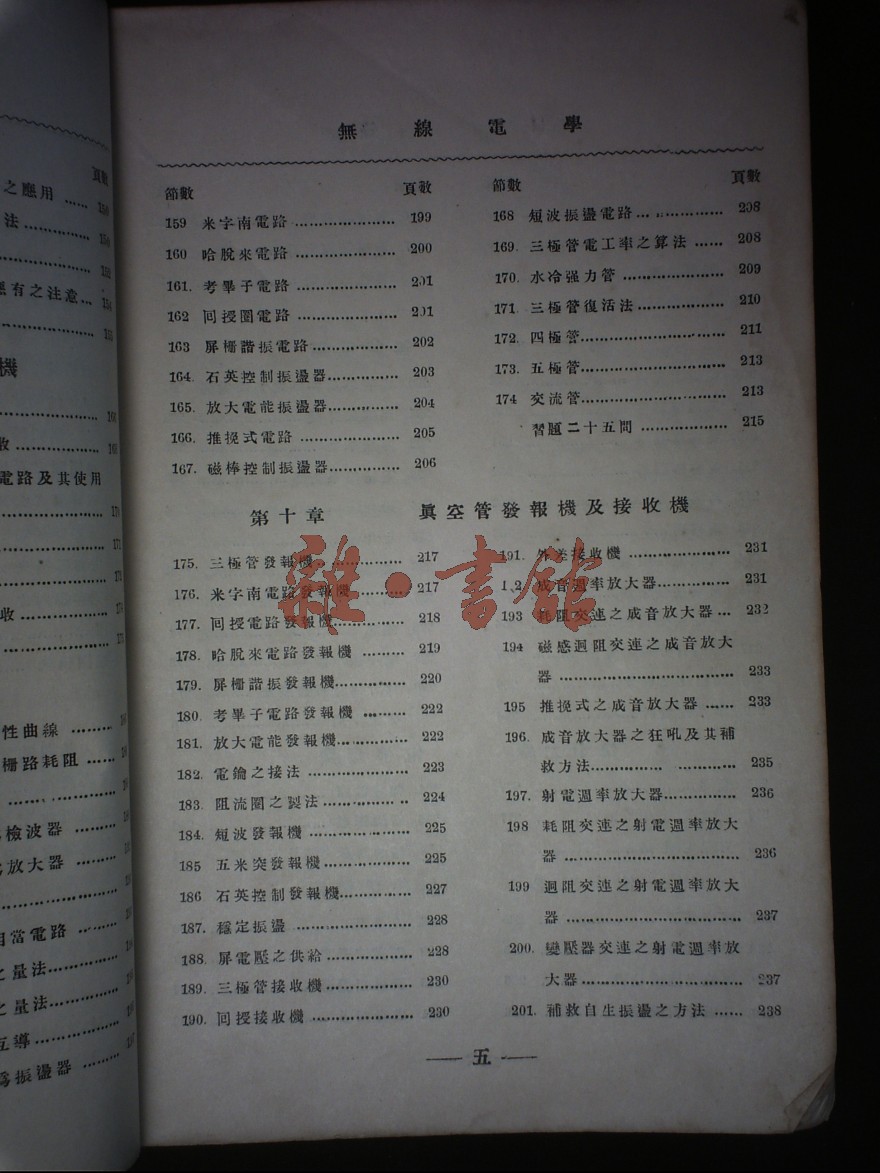 無線電學
節數 頁數
159 米字南電路 199
160 哈脫來電路 200
161. 考畢子電路 201
162 囘授圈電路 201
163 屏柵諧振電路 202
164. 石英控制振盪器 203
165. 放大電能振盪器 204
166. 推挽式電路 205
167. 磁棒控制振盪器 206
節數 頁數
168 短波振盪電路 208
169. 三極管電工率之算法 208
170. 水冷强力管 209
171. 三極管復活法 210
172. 四極管 211
173. 五極管 213
174 交流管 213
習題二十五問 215
第十章 眞空管發報機及接收機
175. 三極管發報機 217
176. 米字南電路發報機 217
177. 囘授電路發報機 218
178. 哈脫來電路發報機 219
179. 屏柵諧振發報機 220
180. 考畢子電路發報機 222
181. 放大電能發報機 222
182. 電鑰之接法 223
183. 阻流圈之製法 224
184. 短波發報機 225
185 五米突發報機 225
186 石英控制發報機 227
187. 穩定振盪 228
188. 屏電壓之供給 228
189. 三極管接收機 230
190. 囘授接收機 230
191. 外差接收機 231
1 2 成音週率放大器 231
193 耗阻交連之成音放大器 232
194 磁感迴阻交連之成音放大
器 233
195 推挽式之成音放大器 233
196. 成音放大器之狂吼及其補
救方法 235
197. 射電週率放大器 236
198 耗阻交連之射電週率放大
器 236
199 迴阻交連之射電週率放大
器 237
200. 變壓器交連之射電週率放
大器 237
201. 補救自生振盪之方法 238
五
雜·書館
頁數
之應用
法
應有之注意
機
收
電路及其使用
收
性曲線
柵路耗阻
檢波器
放大器
相當電路
之量法
之量法
互導
為振盪器